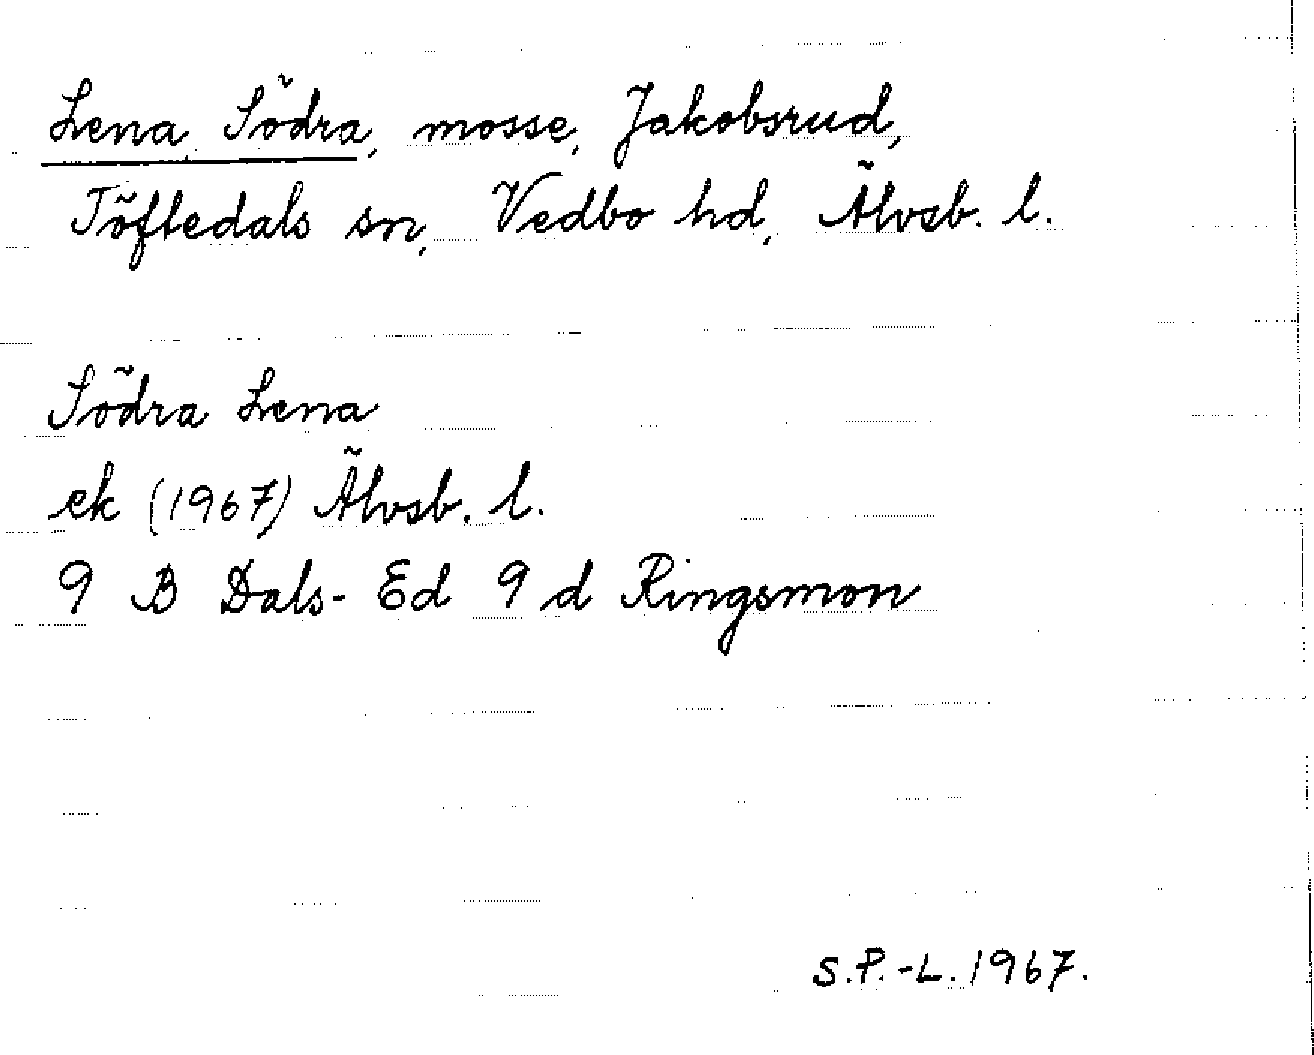 Lena, Södra, mosse, Jakobsrud,
Töftedals sn, Vedbo hd, Älvsb. l.
Södra Lena
ek (1967) Älvsb. l.
9 B Dals-Ed 9 d Ringsmon
S.P.-L. 1967.